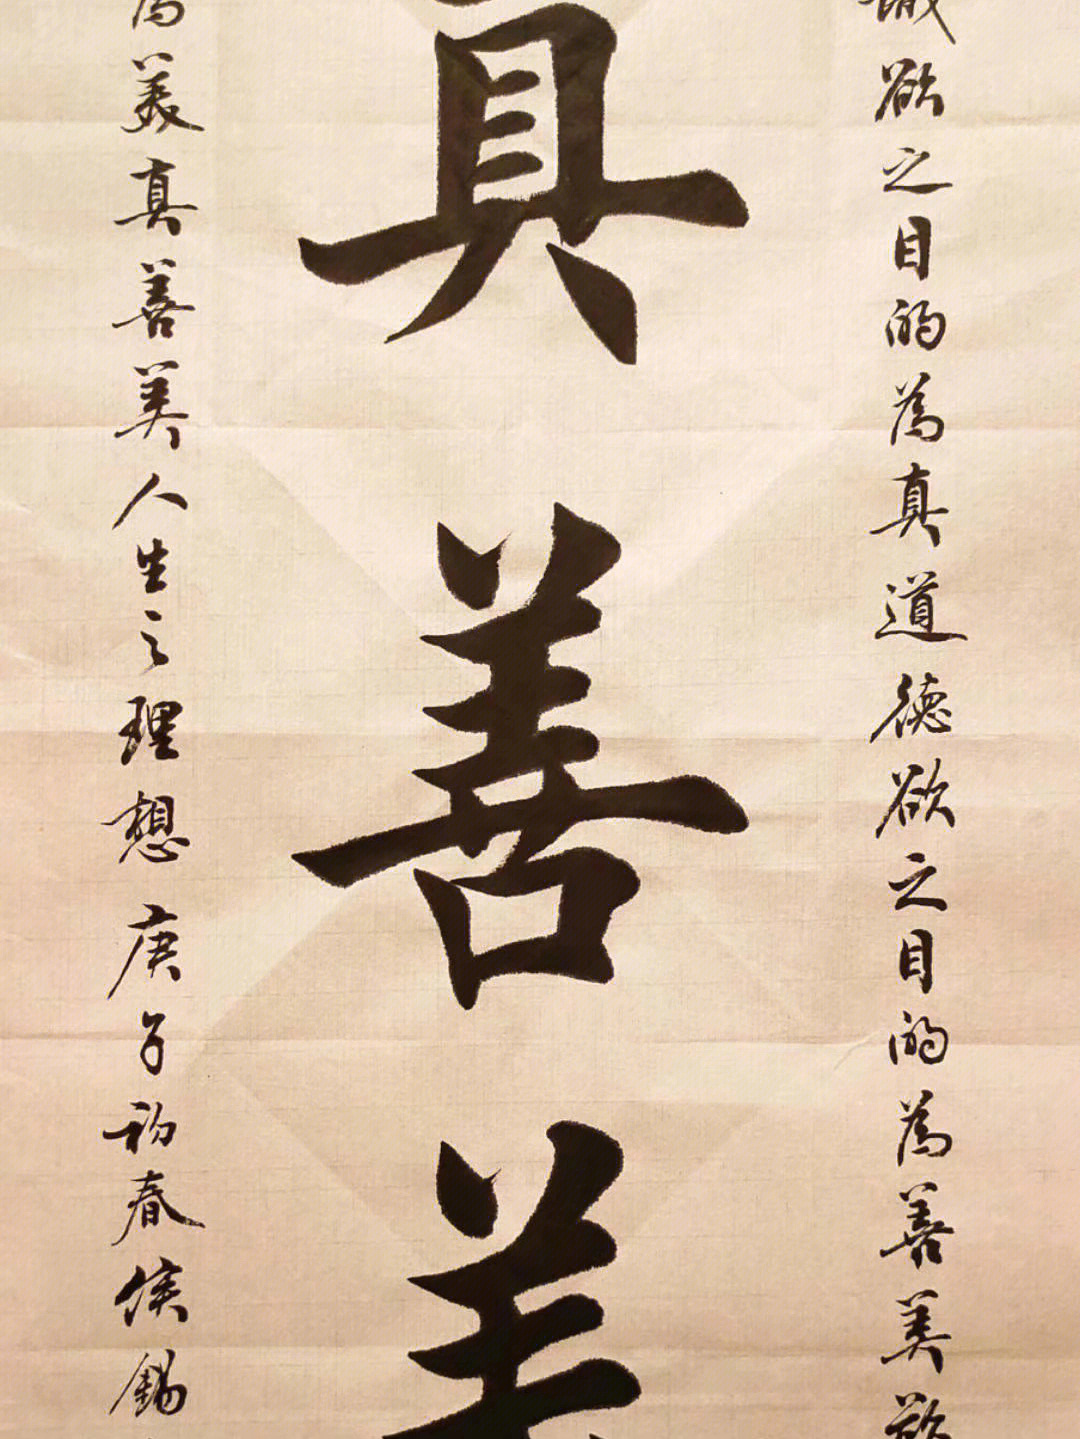 識欲之目的為真道德欲之目的為善美欲
真善美
為美真善美人生之理想庚子初春侯錫